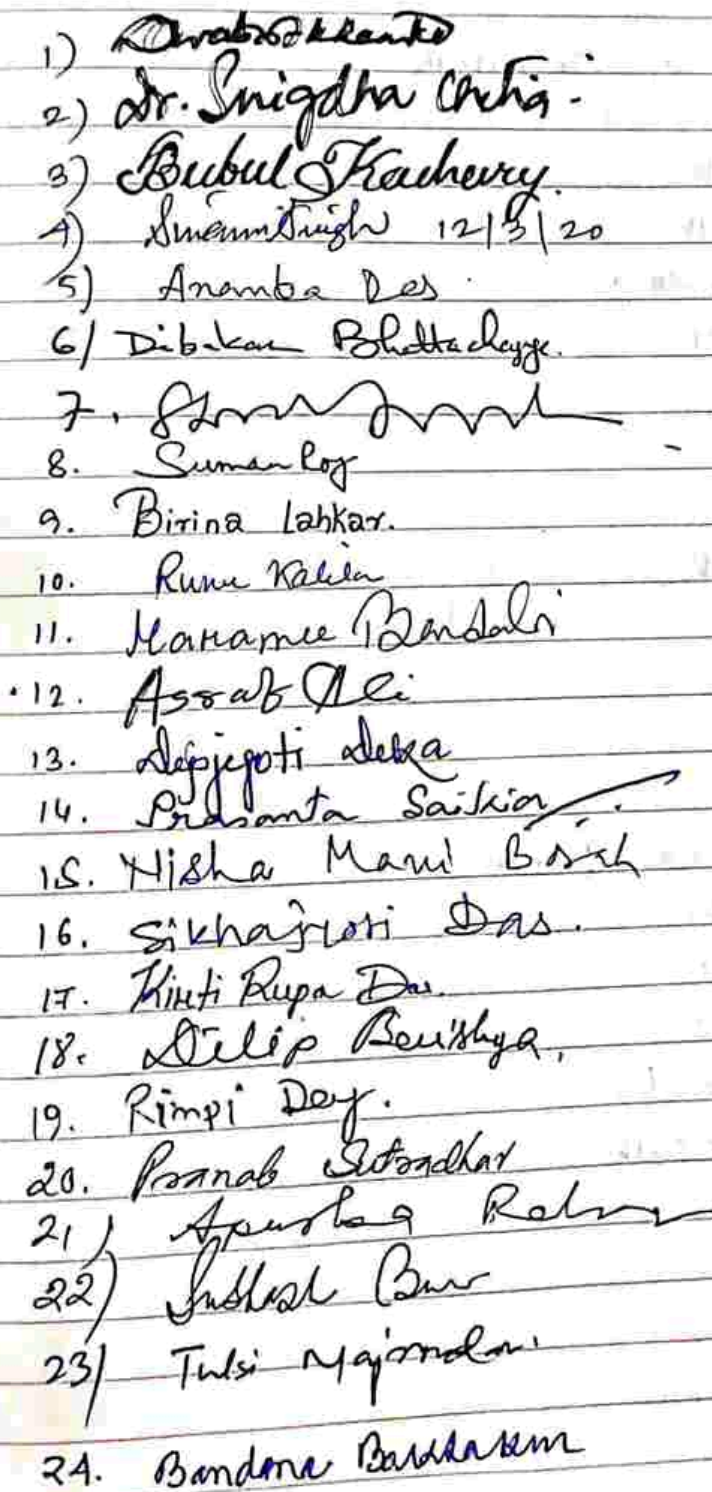 1)
2) Dr. Snigdha Chetia.
3) Bubul Kachary.
4) Singh 12/3/20
5) Anamba Das.
6/ Dibakar Bhattacharyya.
7.
8. Suman Roy
9. Birina Lahkar.
10. Runu Kalita
11. Maramee Bordoloi
12. Assab Ali
13. Depjyoti Deka
14. Prasanta Saikia
15. Nisha Mani Borah
16. Sikhajyoti Das.
17. Kirti Rupa Das.
18. Dilip Baishya,
19. Rimpi Dey.
20. Pranab Sutradhar
21)
22)
23/ Tulsi Majumdar.
24. Bandana